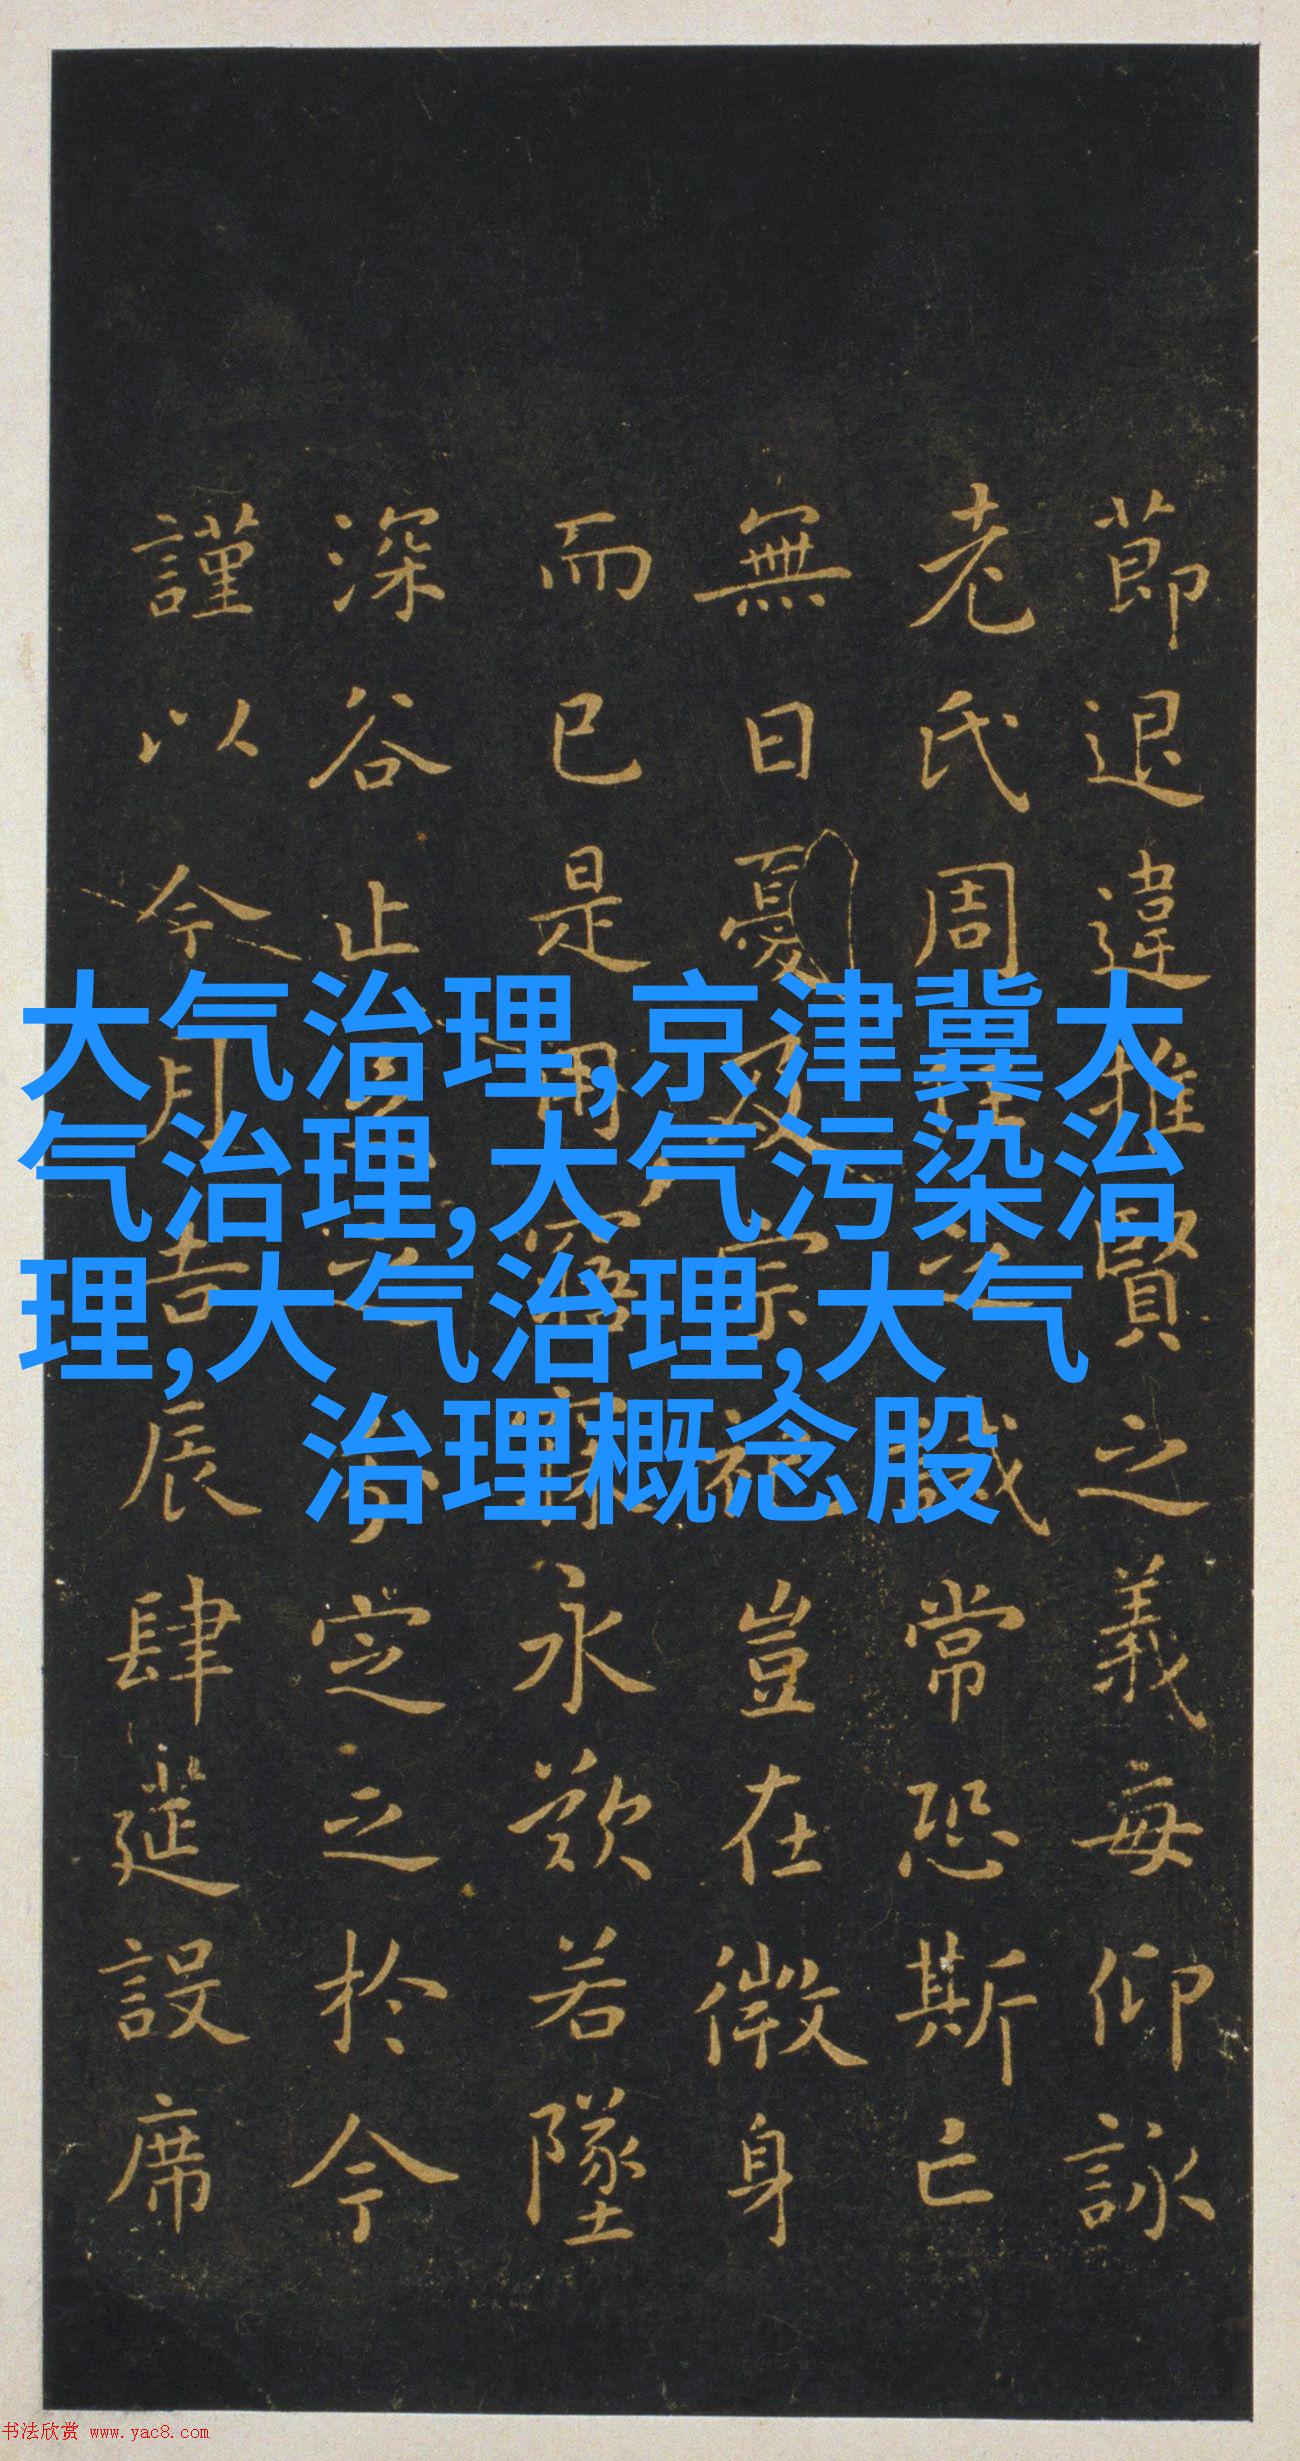 莭退違推賢之義每仰詠
老氏周任之誡常恐斯亡
無日憂及宗祀豈在微身
而已是用寤寐永歎若墜
深谷止足之分定之於今
謹以今月吉辰肆筵設席
大气治理,京津冀大
气治理,大气污染治
理,大气治理,大气
治理概念股
书法欣赏 www.yac8.com